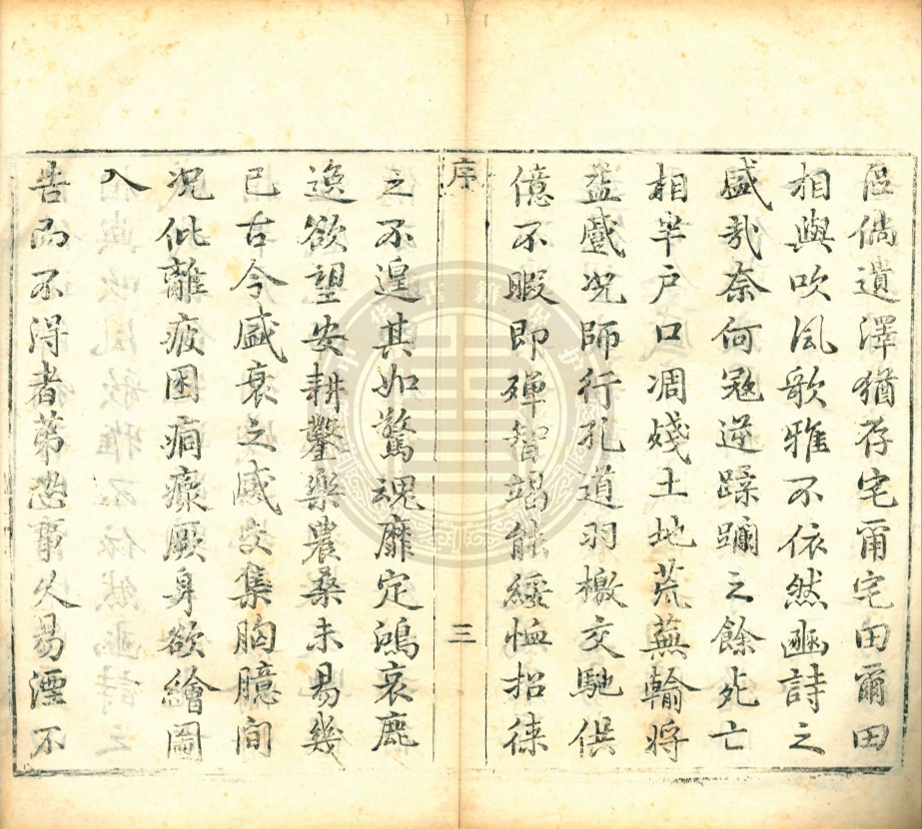 區倘遺澤猶存宅爾宅田爾田
相與吹風歌雅不依然豳詩之
盛哉奈何冦逆蹂躪之餘死亡
相半戶口凋殘土地荒蕪輸將
益蹙况師行孔道羽檄交馳供
億不暇即殫智竭能綏恤招徠
序
三
之不遑其如驚魂靡定鴻哀鹿
逸欲望安耕鑿樂農桑未易幾
已古今盛衰之感交集胸臆間
況仳離疲困痌瘝厥身欲繪圖
入
告而不得者第恐事久易湮不